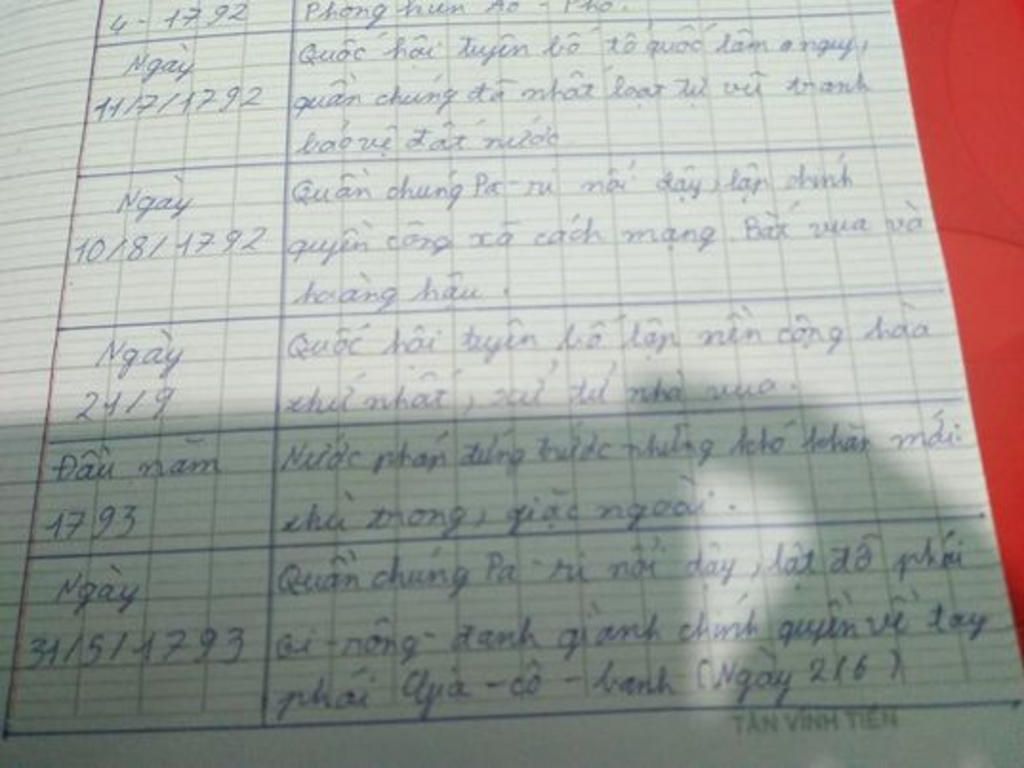 4 - 1792 Phong kiến Áo - Phổ.
Ngày Quốc hội tuyên bố tổ quốc lâm nguy,
11/7/1792 quần chúng đã nhất loạt tự vũ trang
bảo vệ đất nước
Ngày Quần chúng Pa-ri nổi dậy, lập chính
10/8/1792 quyền công xã cách mạng. Bắt vua và
hoàng hậu.
Ngày Quốc hội tuyên bố lập nền cộng hòa
21/9 thứ nhất, xử tử nhà vua.
Đầu năm Nước pháp đứng trước những khó khăn mới:
1793 thù trong, giặc ngoài.
Ngày Quần chúng Pa-ri nổi dậy, lật đổ phái
31/5/1793 Gi-rông-đanh giành chính quyền về tay
phái Gia-cô-banh (Ngày 2/6)
TÂN VĨNH TIẾN